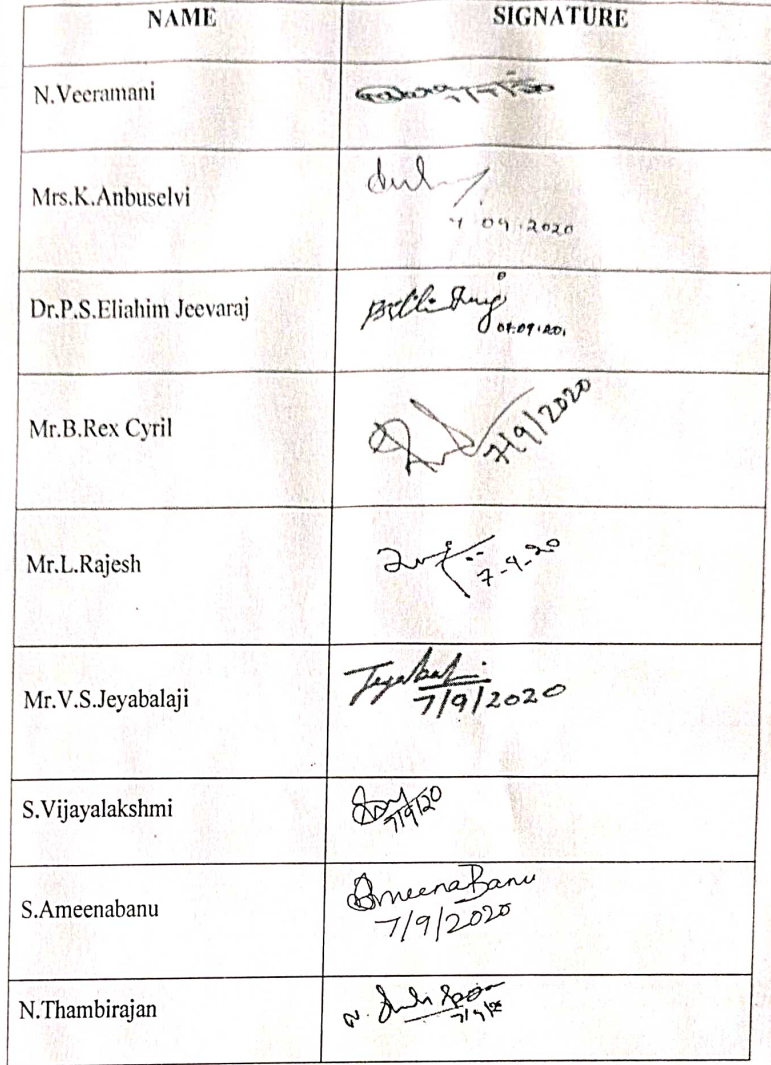 NAME SIGNATURE
N.Veeramani 7/9/20
Mrs.K.Anbuselvi
7.09.2020
Dr.P.S.Eliahim Jeevaraj
07.09.20
Mr.B.Rex Cyril 7/9/2020
Mr.L.Rajesh
7-9-20
Mr.V.S.Jeyabalaji Jeyabalaji
7/9/2020
S.Vijayalakshmi
7/9/20
S.Ameenabanu AmeenaBanu
7/9/2020
N.Thambirajan N.
7/9/20